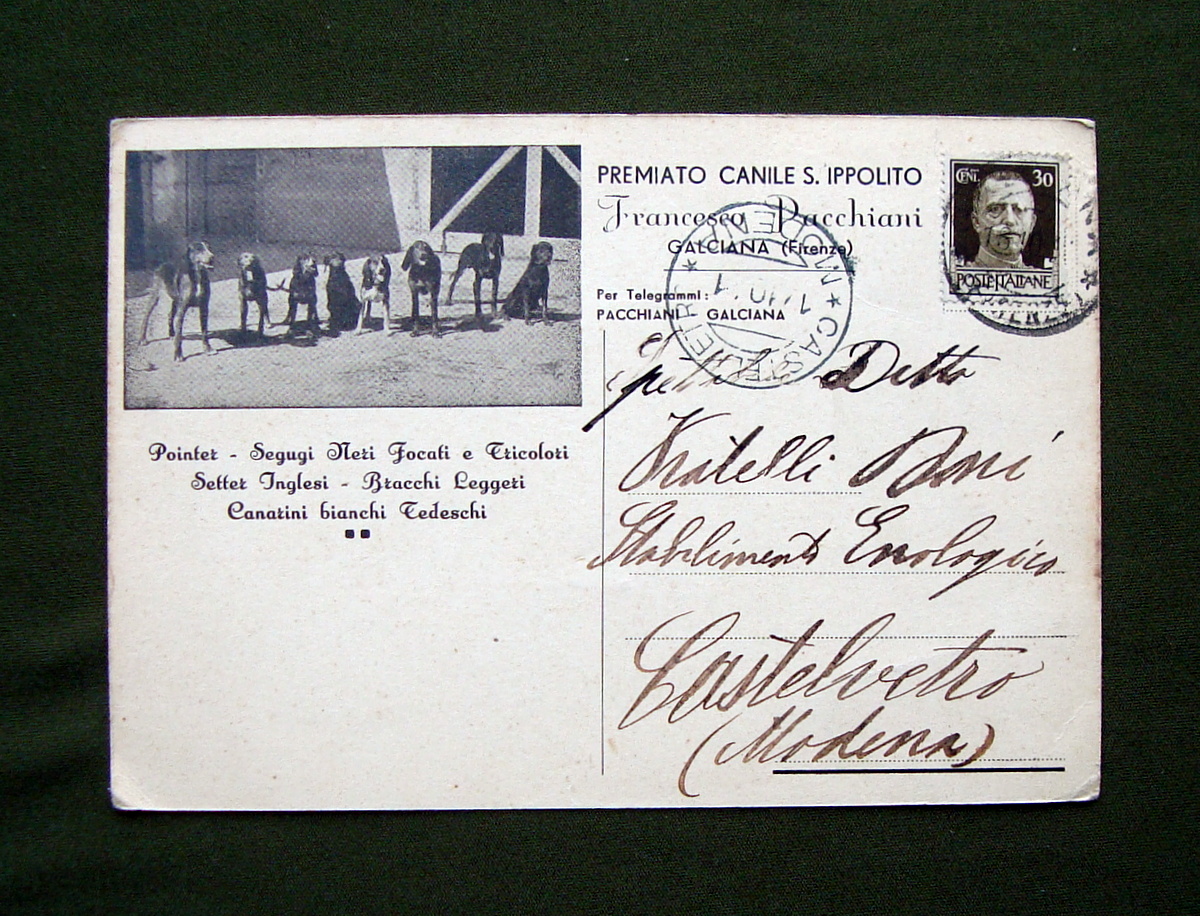 PREMIATO CANILE S. IPPOLITO
Francesco Pacchiani
GALCIANA (Firenze)
Per Telegrammi:
PACCHIANI GALCIANA
CENT. 30
POSTE ITALIANE
Pointer - Segugi Neri Focati e Tricolori
Setter Inglesi - Bracchi Leggeri
Canarini bianchi Tedeschi
Ditta
Fratelli
Stabilimento Enologico
Castelvetro
(Modena)